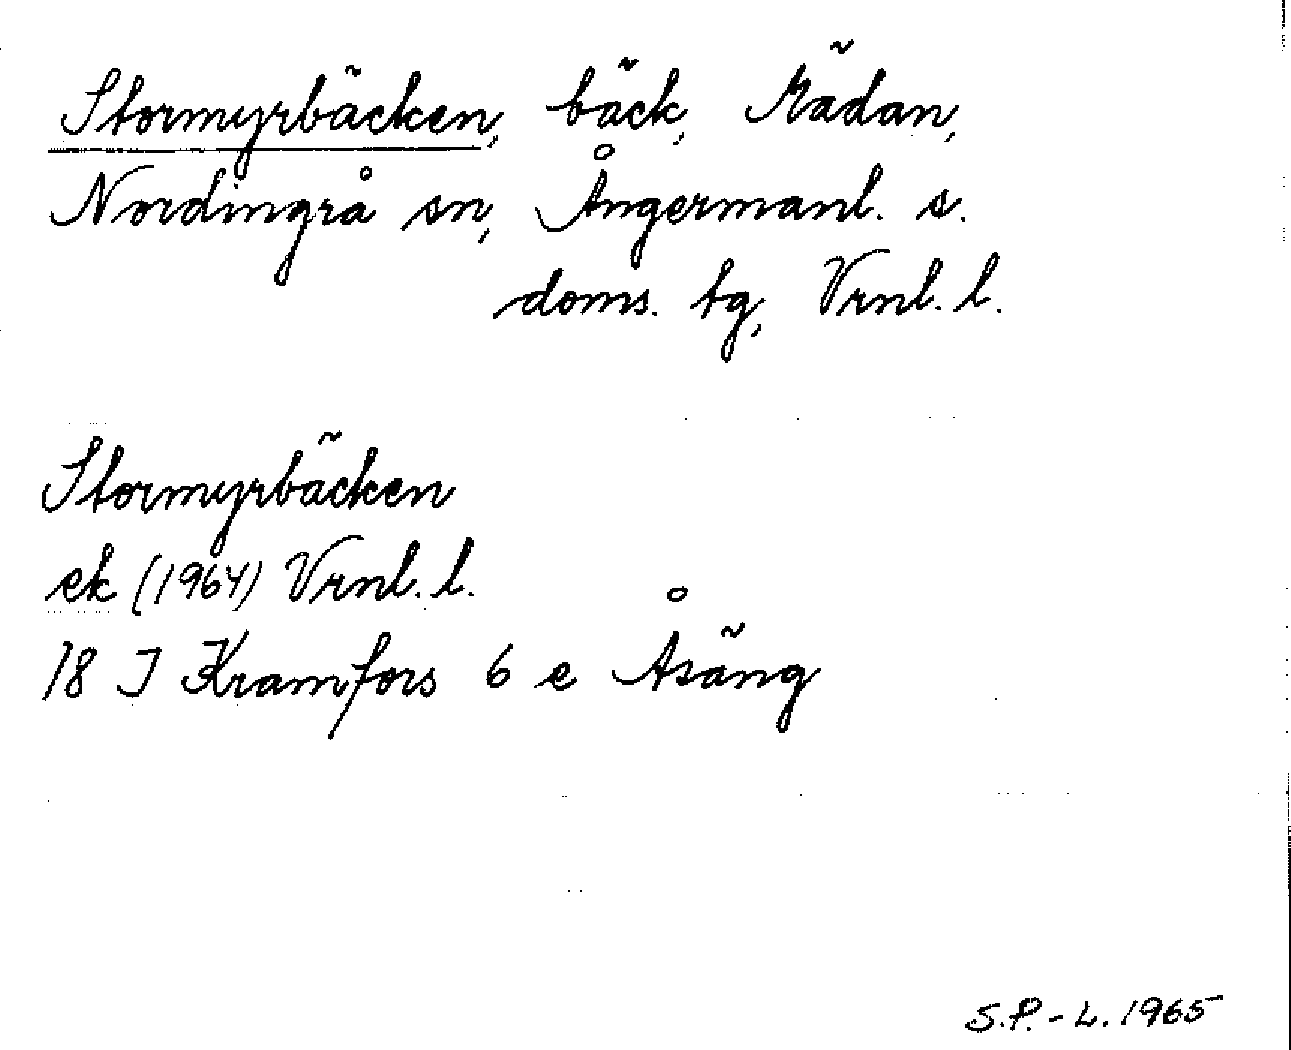 Stormyrbäcken, bäck, Mädan,
Nordingrå sn, Ångermanl. s.
doms. tg, Vrnl. l.
Stormyrbäcken
ek (1964) Vrnl. l.
18 I Kramfors 6 e Åsäng
S.P.-L. 1965